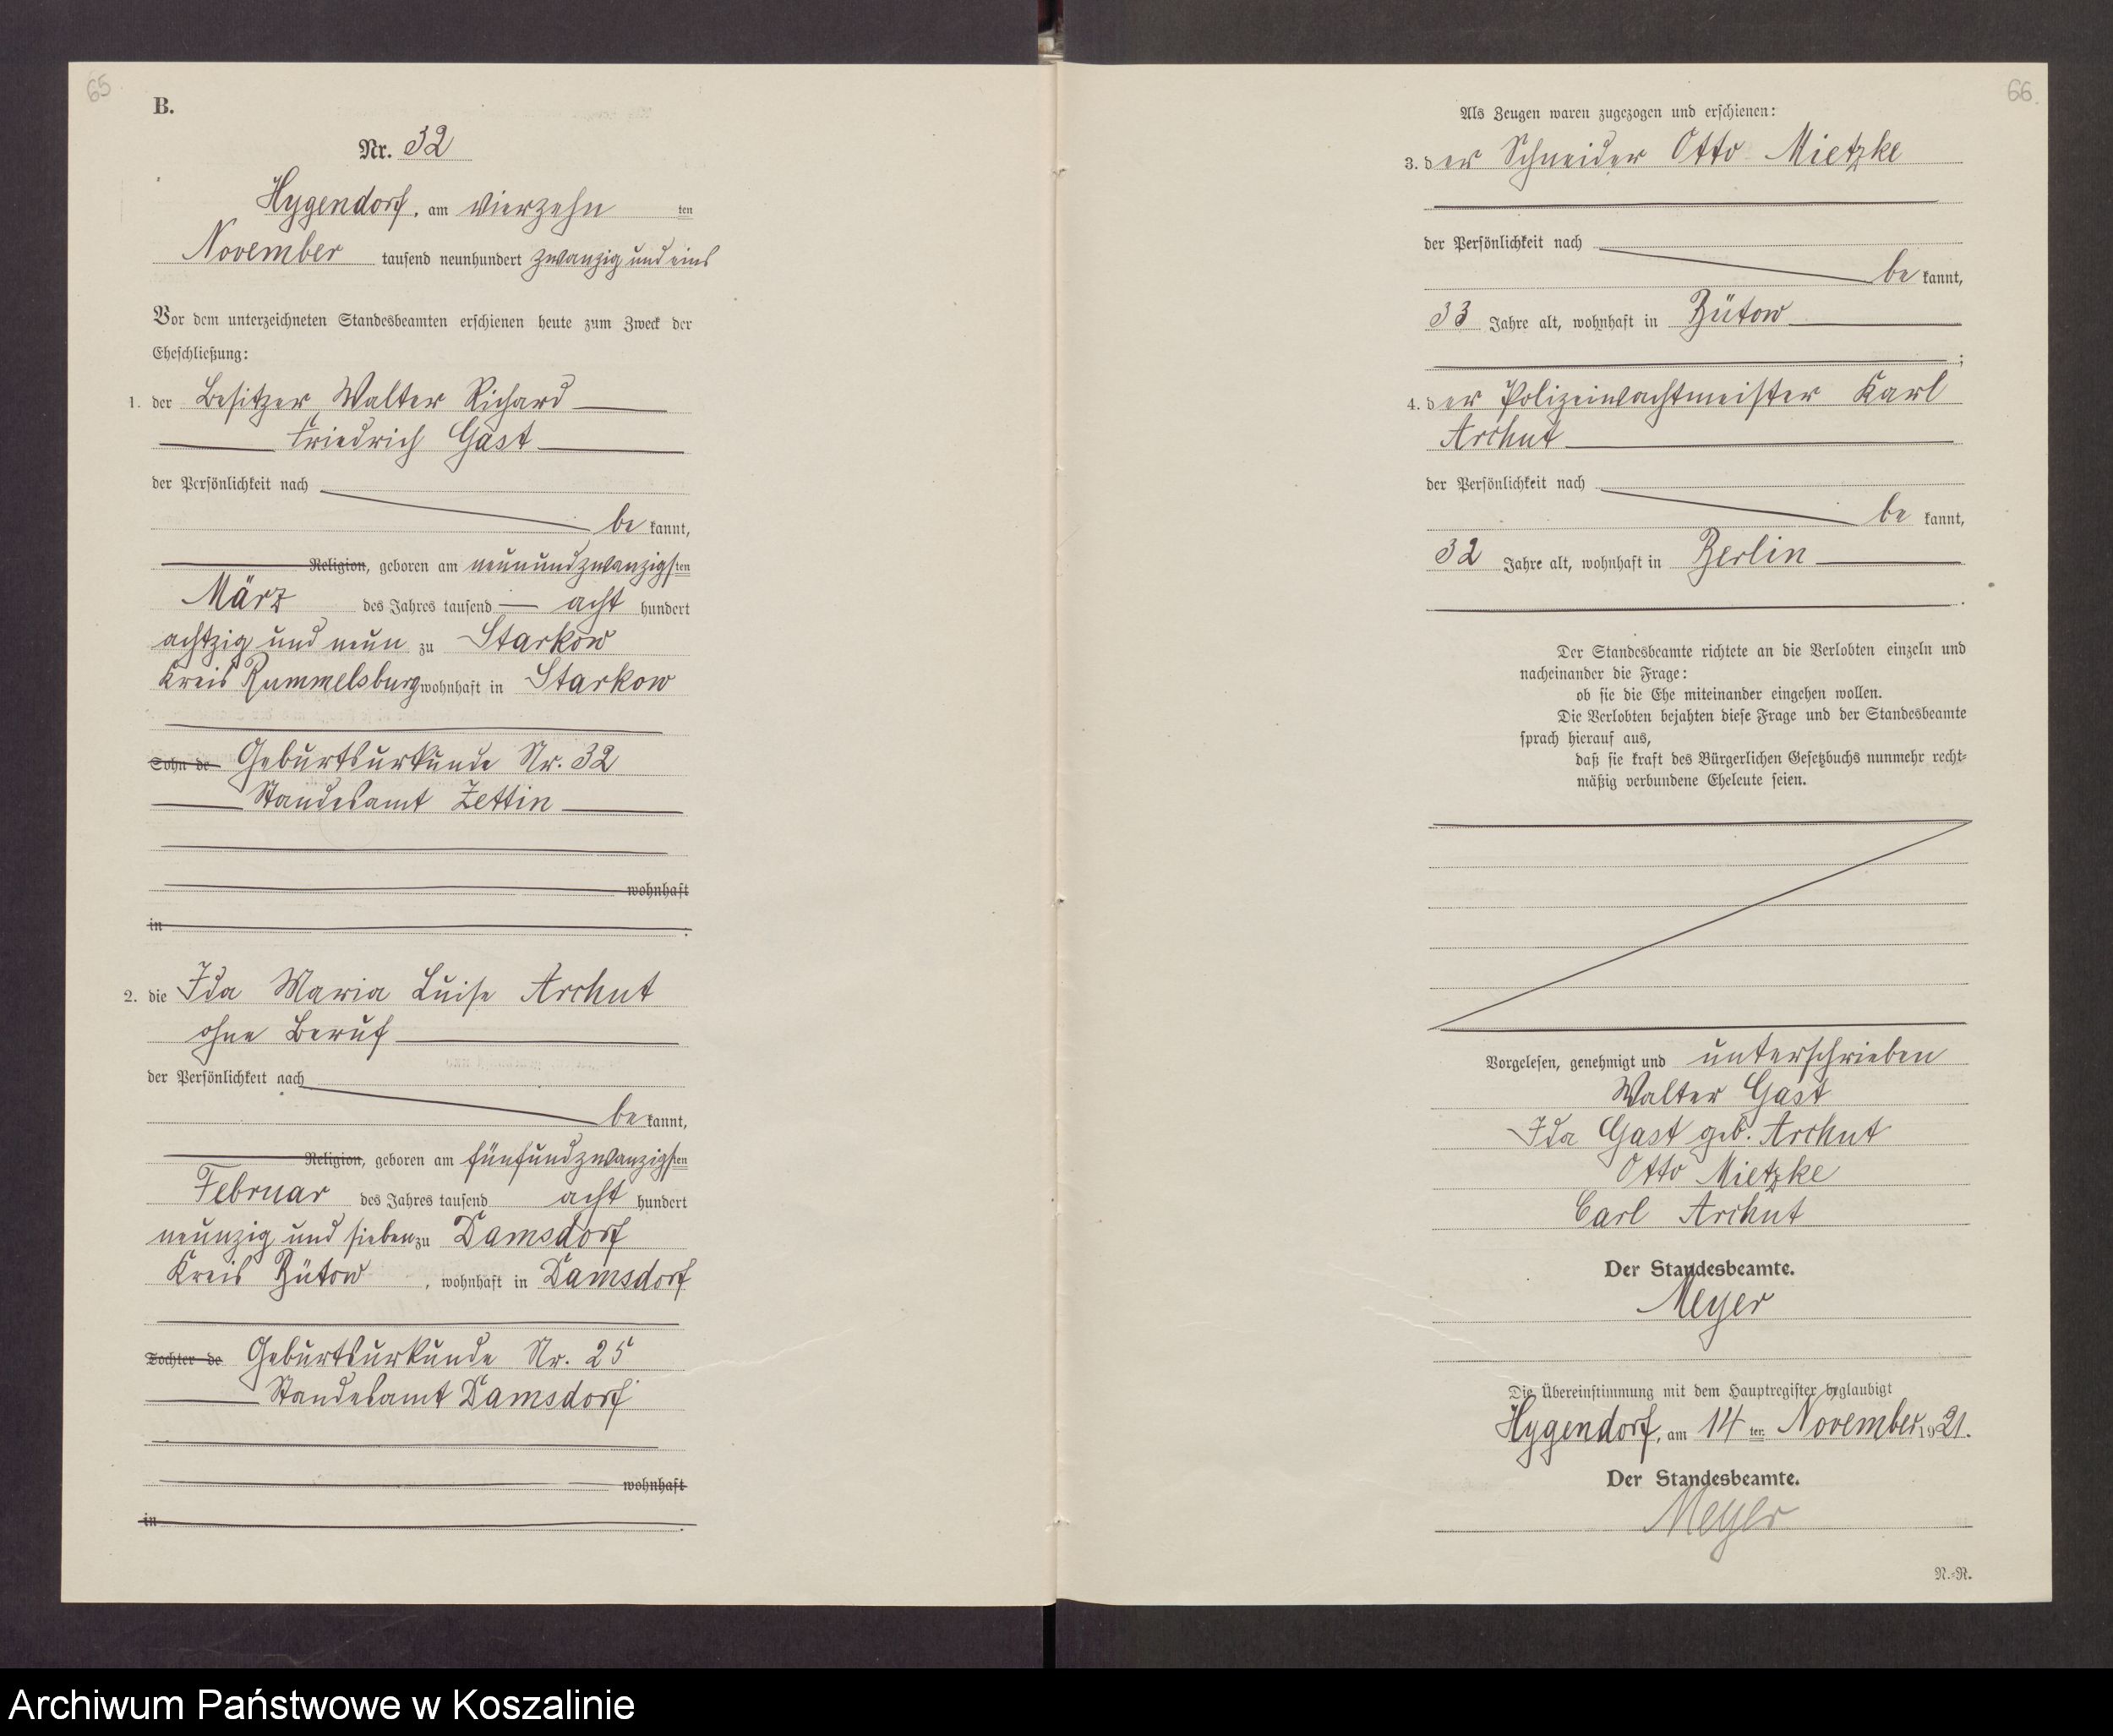 65
B.
Nr. 32
Hygendorf, am vierzehn ten
November tausend neunhundert zwanzig und eins
Vor dem unterzeichneten Standesbeamten erschienen heute zum Zweck der
Eheschließung:
1. der Besitzer Walter Richard
Friedrich Gast
der Persönlichkeit nach
be kannt,
Religion, geboren am neunundzwanzigsten
März des Jahres tausend acht hundert
achtzig und neun zu Starkow
Kreis Rummelsburg wohnhaft in Starkow
Sohn de Geburtsurkunde Nr. 32
Standesamt Zettin
wohnhaft
in
2. die Ida Maria Luise Archut
ohne Beruf
der Persönlichkeit nach
be kannt,
Religion, geboren am fünfundzwanzigsten
Februar des Jahres tausend acht hundert
neunzig und sieben zu Damsdorf
Kreis Bütow, wohnhaft in Damsdorf
Tochter de Geburtsurkunde Nr. 25
Standesamt Damsdorf
wohnhaft
in
66.
Als Zeugen waren zugezogen und erschienen:
3. der Schneider Otto Mietzke
der Persönlichkeit nach
be kannt,
33 Jahre alt, wohnhaft in Bütow
;
4. der Polizeiwachtmeister Karl
Archut
der Persönlichkeit nach
be kannt,
32 Jahre alt, wohnhaft in Berlin
.
Der Standesbeamte richtete an die Verlobten einzeln und
nacheinander die Frage:
ob sie die Ehe miteinander eingehen wollen.
Die Verlobten bejahten diese Frage und der Standesbeamte
sprach hierauf aus,
daß sie kraft des Bürgerlichen Gesetzbuchs nunmehr recht-
mäßig verbundene Eheleute seien.
Vorgelesen, genehmigt und unterschrieben
Walter Gast
Ida Gast geb. Archut
Otto Mietzke
Carl Archut
Der Standesbeamte.
Meyer
Die Übereinstimmung mit dem Hauptregister beglaubigt
Hygendorf, am 14 ten November 1921.
Der Standesbeamte.
Meyer
N.-R.
Archiwum Państwowe w Koszalinie